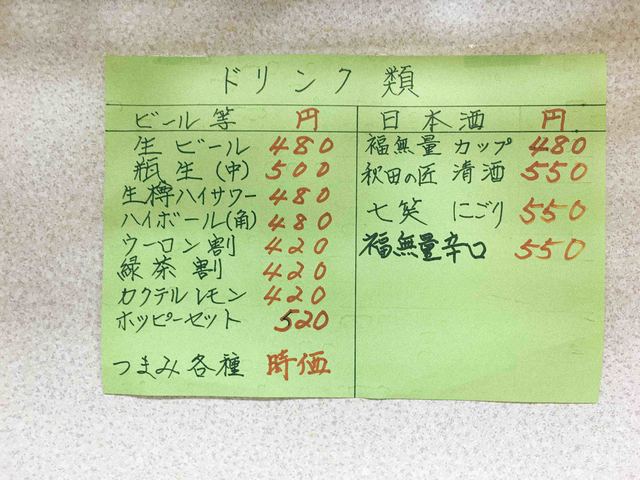 ドリンク類
ビール等 円
生ビール 480
瓶生(中) 500
生樽ハイサワー 480
ハイボール(角) 480
ウーロン割 420
緑茶割 420
カクテルレモン 420
ホッピーセット 520
つまみ各種 時価
日本酒 円
福無量 カップ 480
秋田の匠 清酒 550
七笑 にごり 550
福無量辛口 550